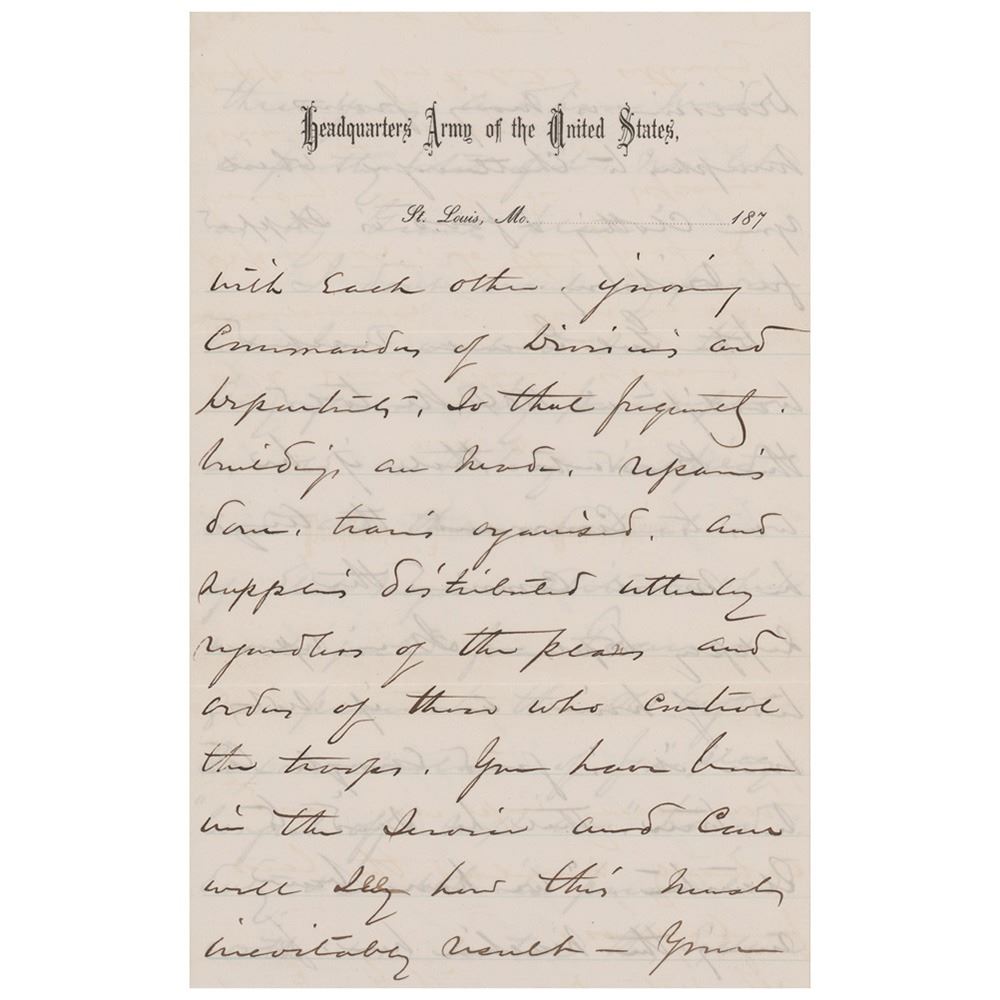 Headquarters Army of the United States,
St. Louis, Mo. 187
with Each other. ignoring
Commanders of Divisions and
Departments, So that frequently.
buildings are made, repairs
done, trains organised, and
supplies distributed utterly
regardless of the plans and
orders of those who control
the troops. You have been
in the Service and Can
well see how this must
inevitably result – Your